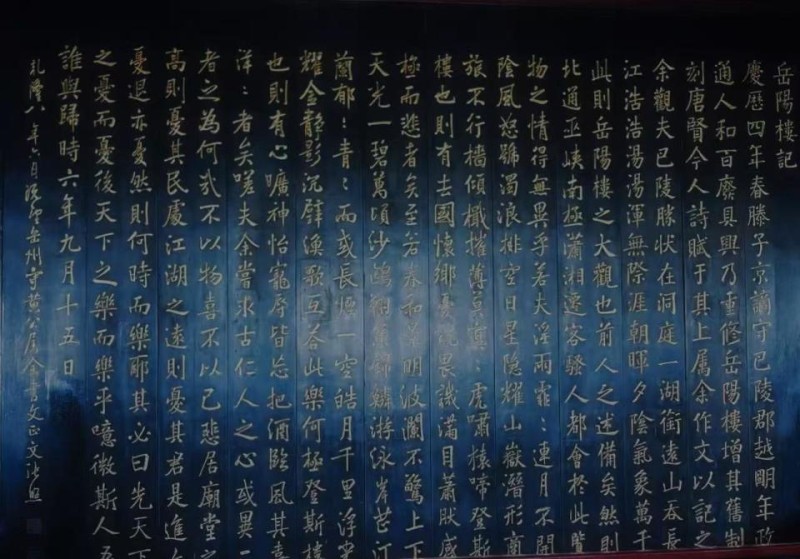 岳陽樓記
慶歷四年春滕子京謫守巴陵郡越明年政
通人和百廢具興乃重修岳陽樓增其舊制
刻唐賢今人詩賦于其上屬余作文以記之
余觀夫巴陵勝狀在洞庭一湖銜遠山吞長
江浩浩湯湯渾無際涯朝暉夕陰氣象萬千
此則岳陽樓之大觀也前人之述備矣然則
北通巫峽南極瀟湘遷客騷人都會於此覽
物之情得無異乎若夫淫雨霏:連月不開
陰風怒號濁浪排空日星隱耀山嶽潛形商
旅不行檣傾檝摧薄暮冥:虎嘯猿啼登斯
樓也則有去國懷鄉憂讒畏譏滿目蕭然感
極而悲者矣至若春和景明波瀾不驚上下
天光一碧萬頃沙鷗翔集錦鱗游泳岸芷汀
蘭郁:青:而或長烟一空皓月千里浮光
耀金靜影沉璧漁歌互答此樂何極登斯樓
也則有心曠神怡寵辱皆忘把酒臨風其喜
洋:者矣嗟夫余嘗求古仁人之心或異二
者之為何哉不以物喜不以己悲居廟堂之
高則憂其民處江湖之遠則憂其君是進亦
憂退亦憂然則何時而樂耶其必曰先天下
之憂而憂後天下之樂而樂乎噫微斯人吾
誰與歸時六年九月十五日
乾隆八年六月岳州守黃公屬余書文正文張照